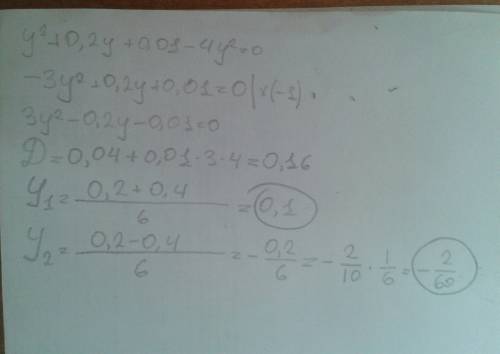 y²+0,2y+0,01-4y²=0
-3y²+0,2y+0,01=0|×(-1)
3y²-0,2y-0,01=0
D=0,04+0,01·3·4=0,16
y₁=(0,2+0,4)/6=0,1
y₂=(0,2-0,4)/6=-0,2/6=-2/10·1/6=-2/60